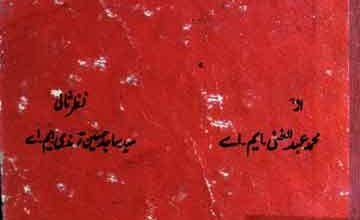 از
محمد عبد الغنی ایم۔ اے
نظر ثانی
سید ساجد حسین ترمذی ایم اے